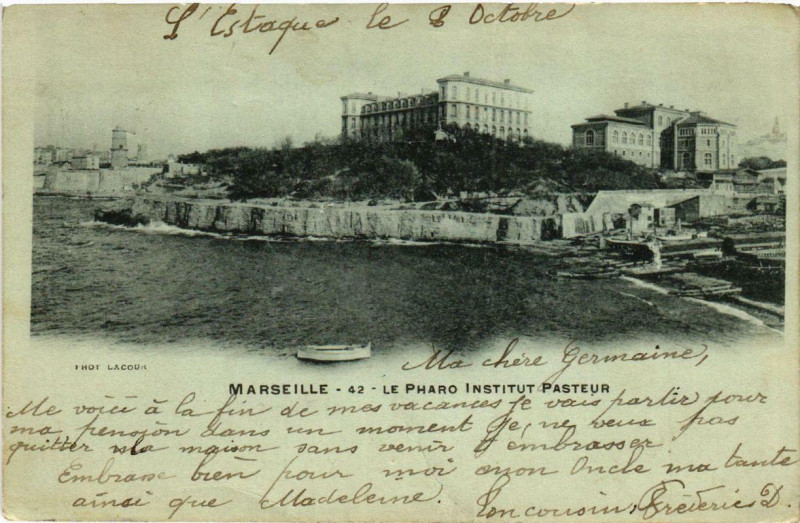 L'Estaque le 8 Octobre
PHOT LACOUR
Ma chère Germaine,
MARSEILLE - 42 - LE PHARO INSTITUT PASTEUR
Me voici à la fin de mes vacances je vais partir pour
ma pension dans un moment je, ne veux pas
quitter la maison sans venir t'embrasser
Embrasse bien pour moi mon Oncle ma tante
ainsi que Madeleine. Ton cousin, Fréderic D.